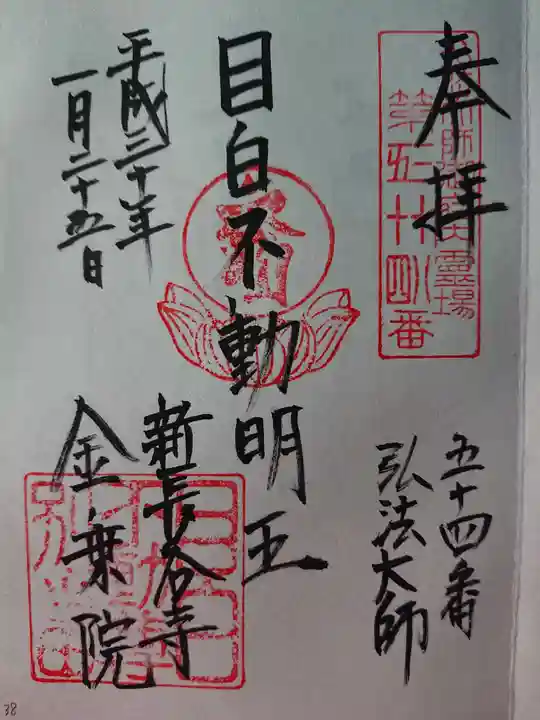 奉拝
第五十四番
霊場
五十四番
弘法大師
目白不動明王
新長谷寺
金乗院
平成三十年
一月二十五日
38